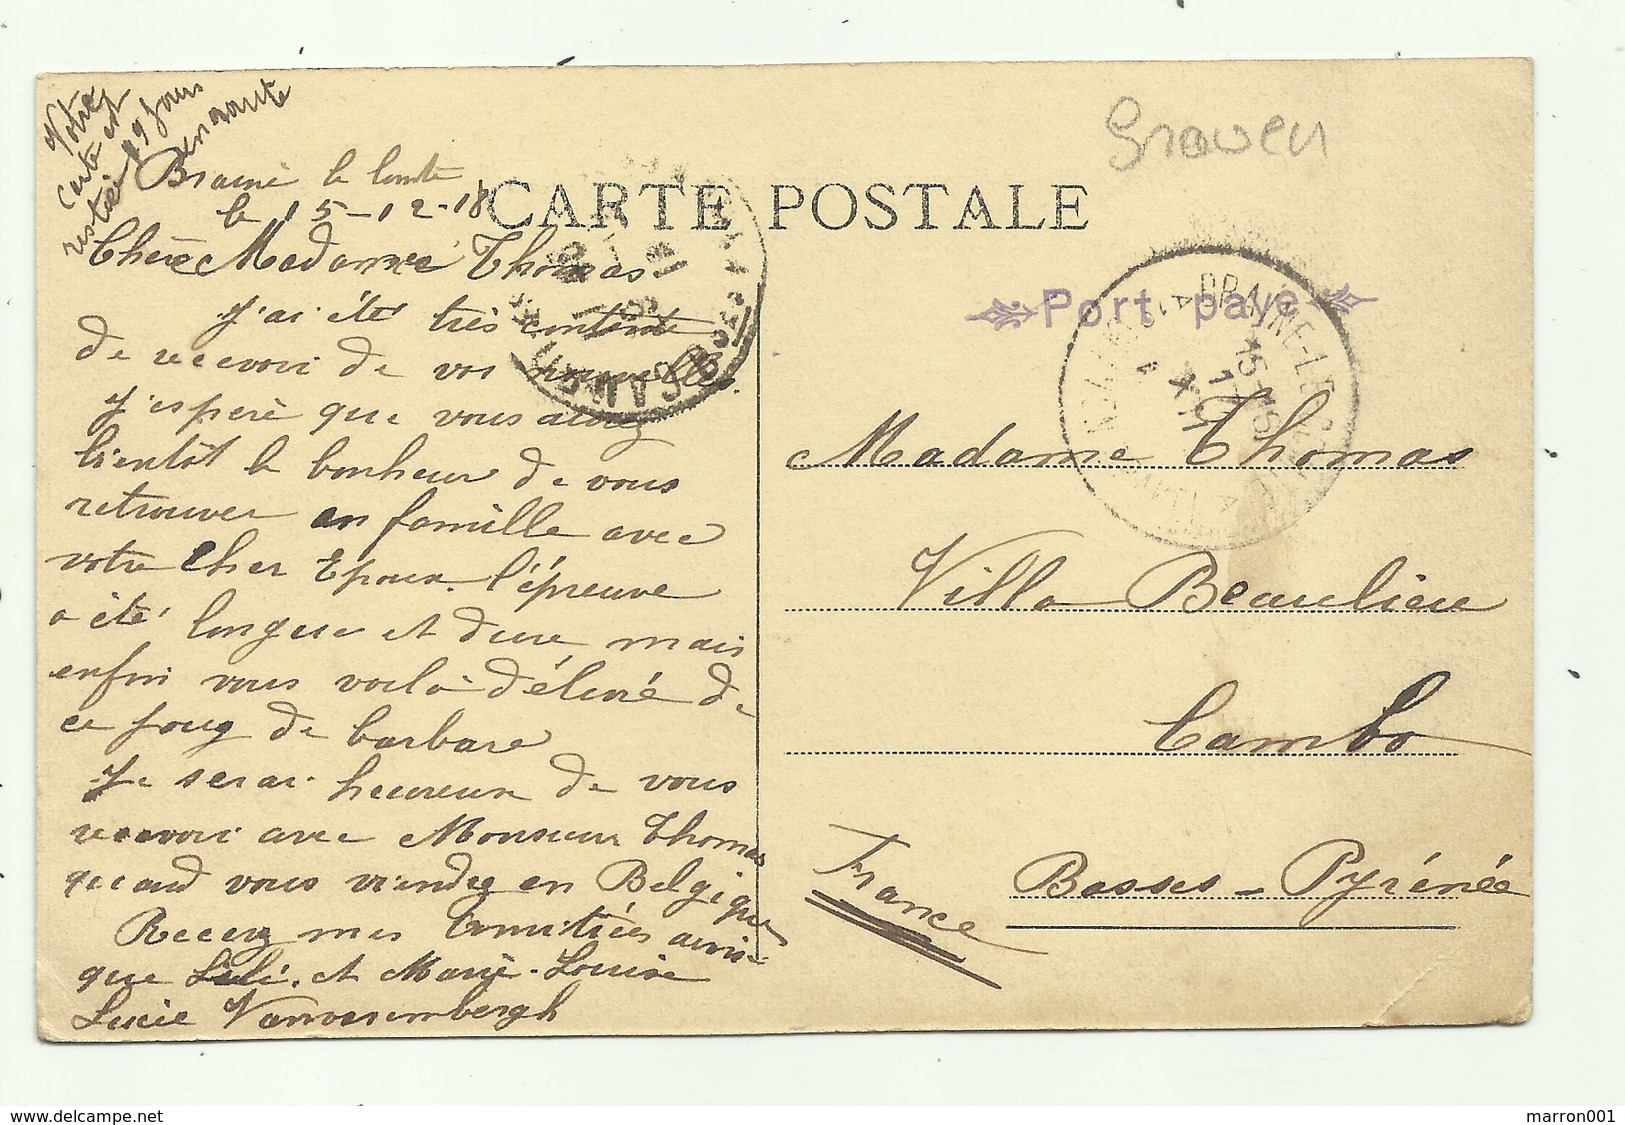 Votre
carte est
restée 19 jours
en route
Braine le Comte
le 15-12-18
CARTE POSTALE
Graven
Chère Madame Thomas
J'ai été très contente
de recevoir de vos nouvelles.
J'espère que vous aurez
bientôt le bonheur de vous
retrouver en famille avec
votre cher Epoux. l'épreuve
a été longue et dure, mais
enfin vous voilà délivré de
ce joug de barbare
Je serai heureux de vous
recevoir avec Monsieur Thomas
quand vous viendrez en Belgique
Recevez mes amitiées ainsi
que Lulé. et Marie-Louise
Lucie
Port paye
BRAINE-LE-COMTE
15-16
Madame Thomas
Villa Beaulieu
Cambo
Basses-Pyrénée
France
www.delcampe.net
marron001